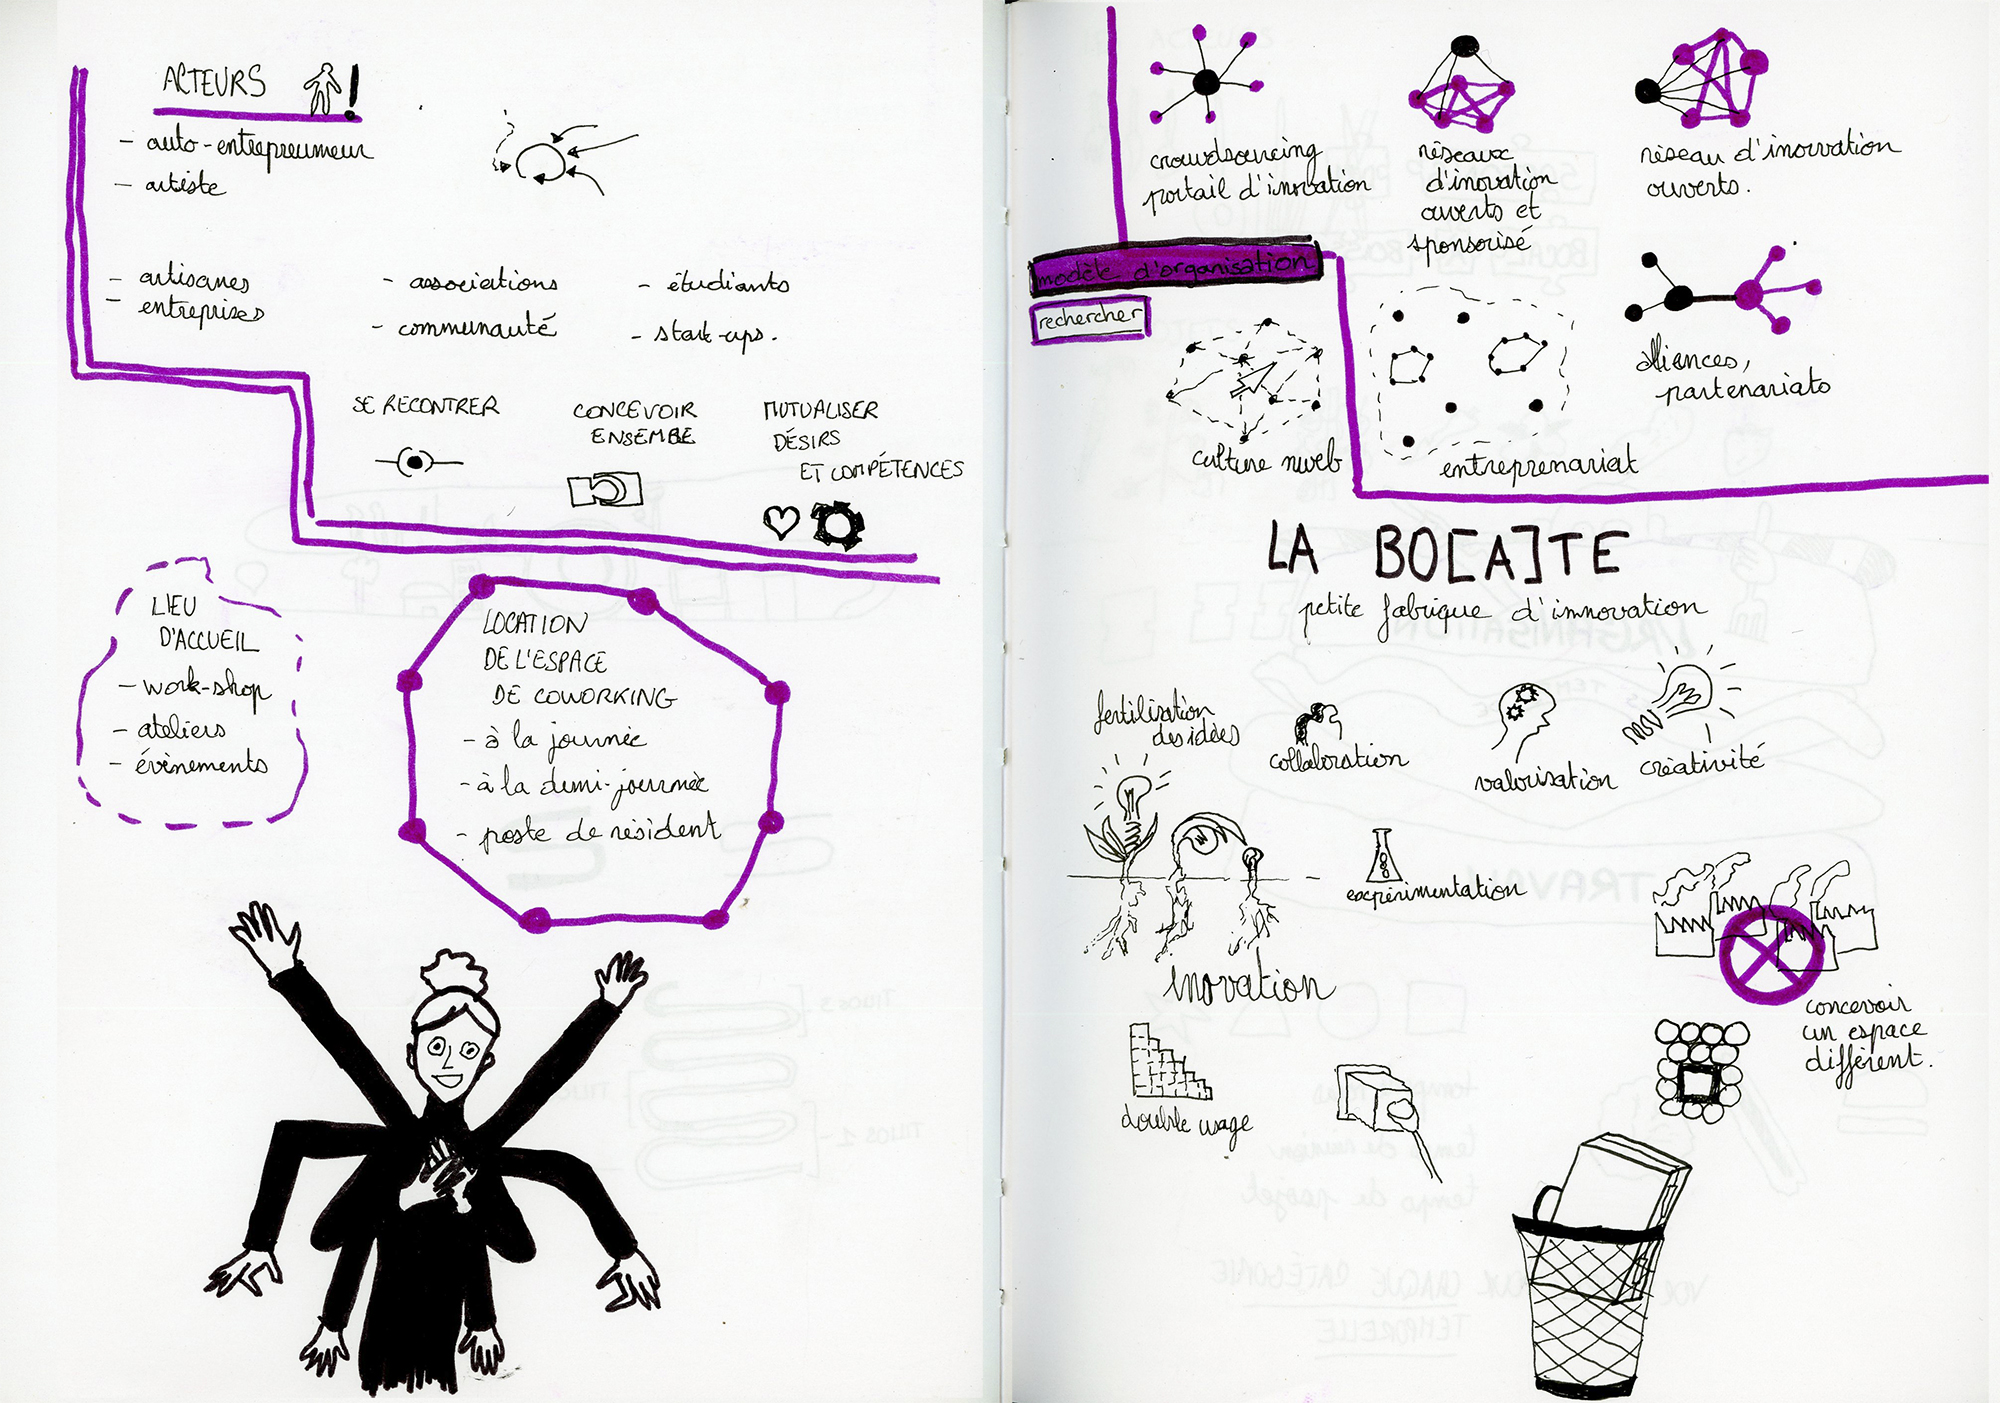 ACTEURS
- auto-entrepreumeur
- artiste
- artisanes
- entreprises
- associations
- communauté
- étudiants
- start-ups.
SE RECONTRER
CONCEVOIR
ENSEMBE
MUTUALISER
DÉSIRS
ET COMPÉTENCES
LIEU
D'ACCUEIL
- work-shop
- ateliers
- évènements
LOCATION
DE L'ESPACE
DE COWORKING
- à la journée
- à la demi-journée
- poste de résident
crowdsourcing
portail d'inovation
réseaux
d'inovation
ouverts et
sponsorisé
réseau d'inovation
ouverts.
modèle d'organisation
rechercher
culture
entreprenariat
alliances,
partenariats
LA BO[A]TE
petite fabrique d'innovation
fertilisation
des idées
collaboration
valorisation
créativité
expérimentation
inovation
concevoir
un espace
différent.
double usage